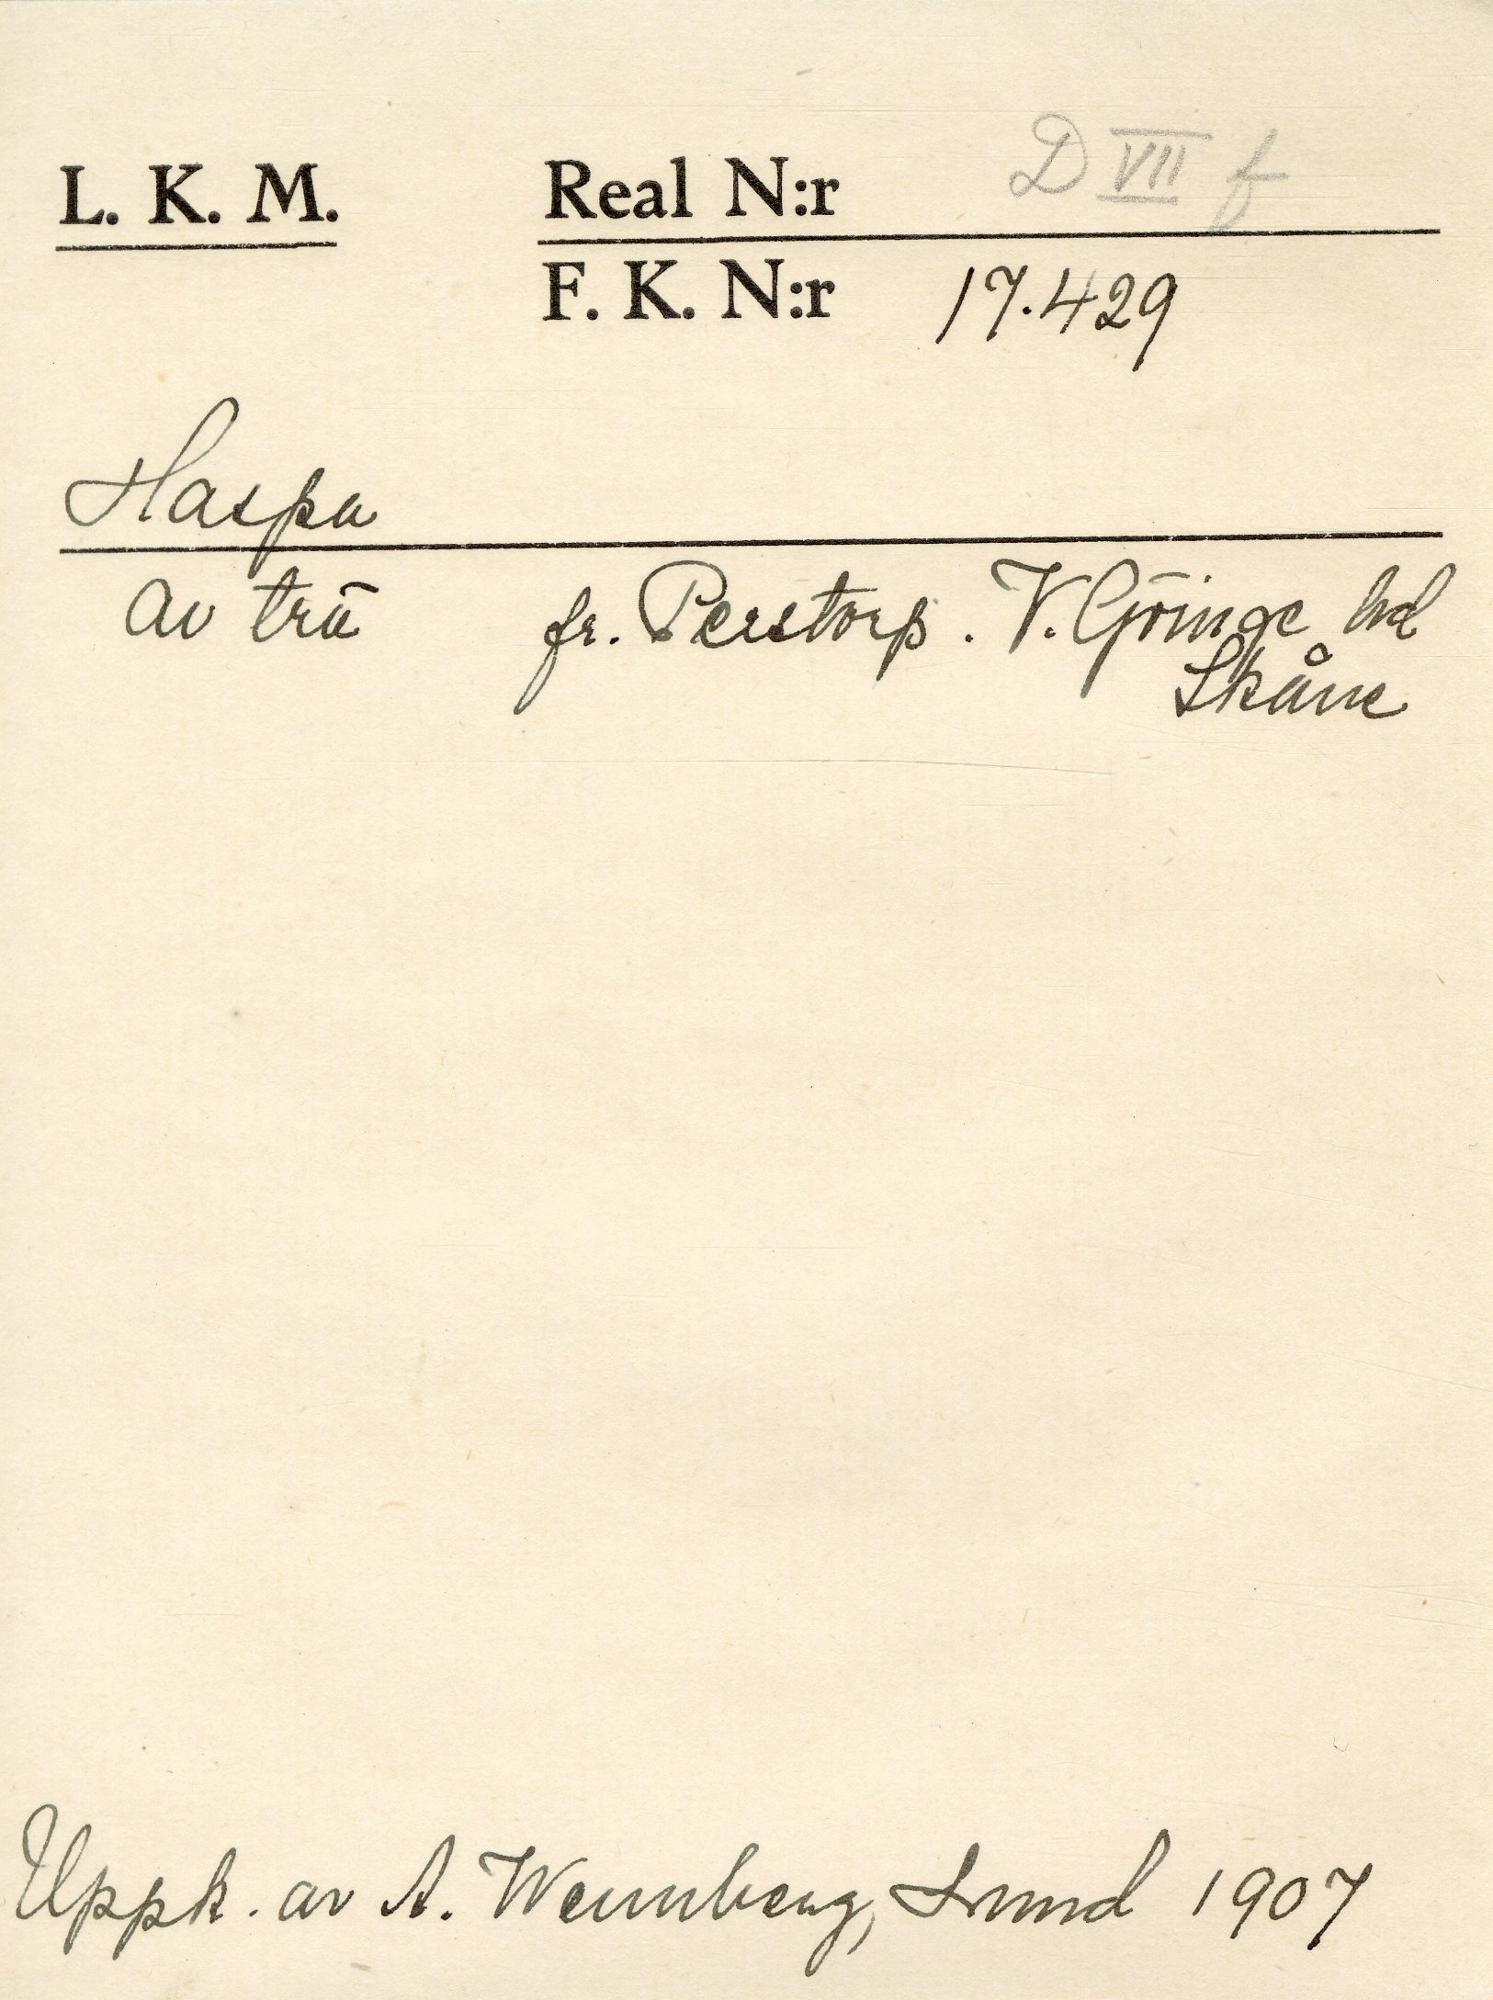 L. K. M. Real N:r D VII f
F. K. N:r 17.429
Haspa
av trä fr. Perstorp. V. Göinge hd
Skåne
Uppk. av A. Wennberg, Lund 1907